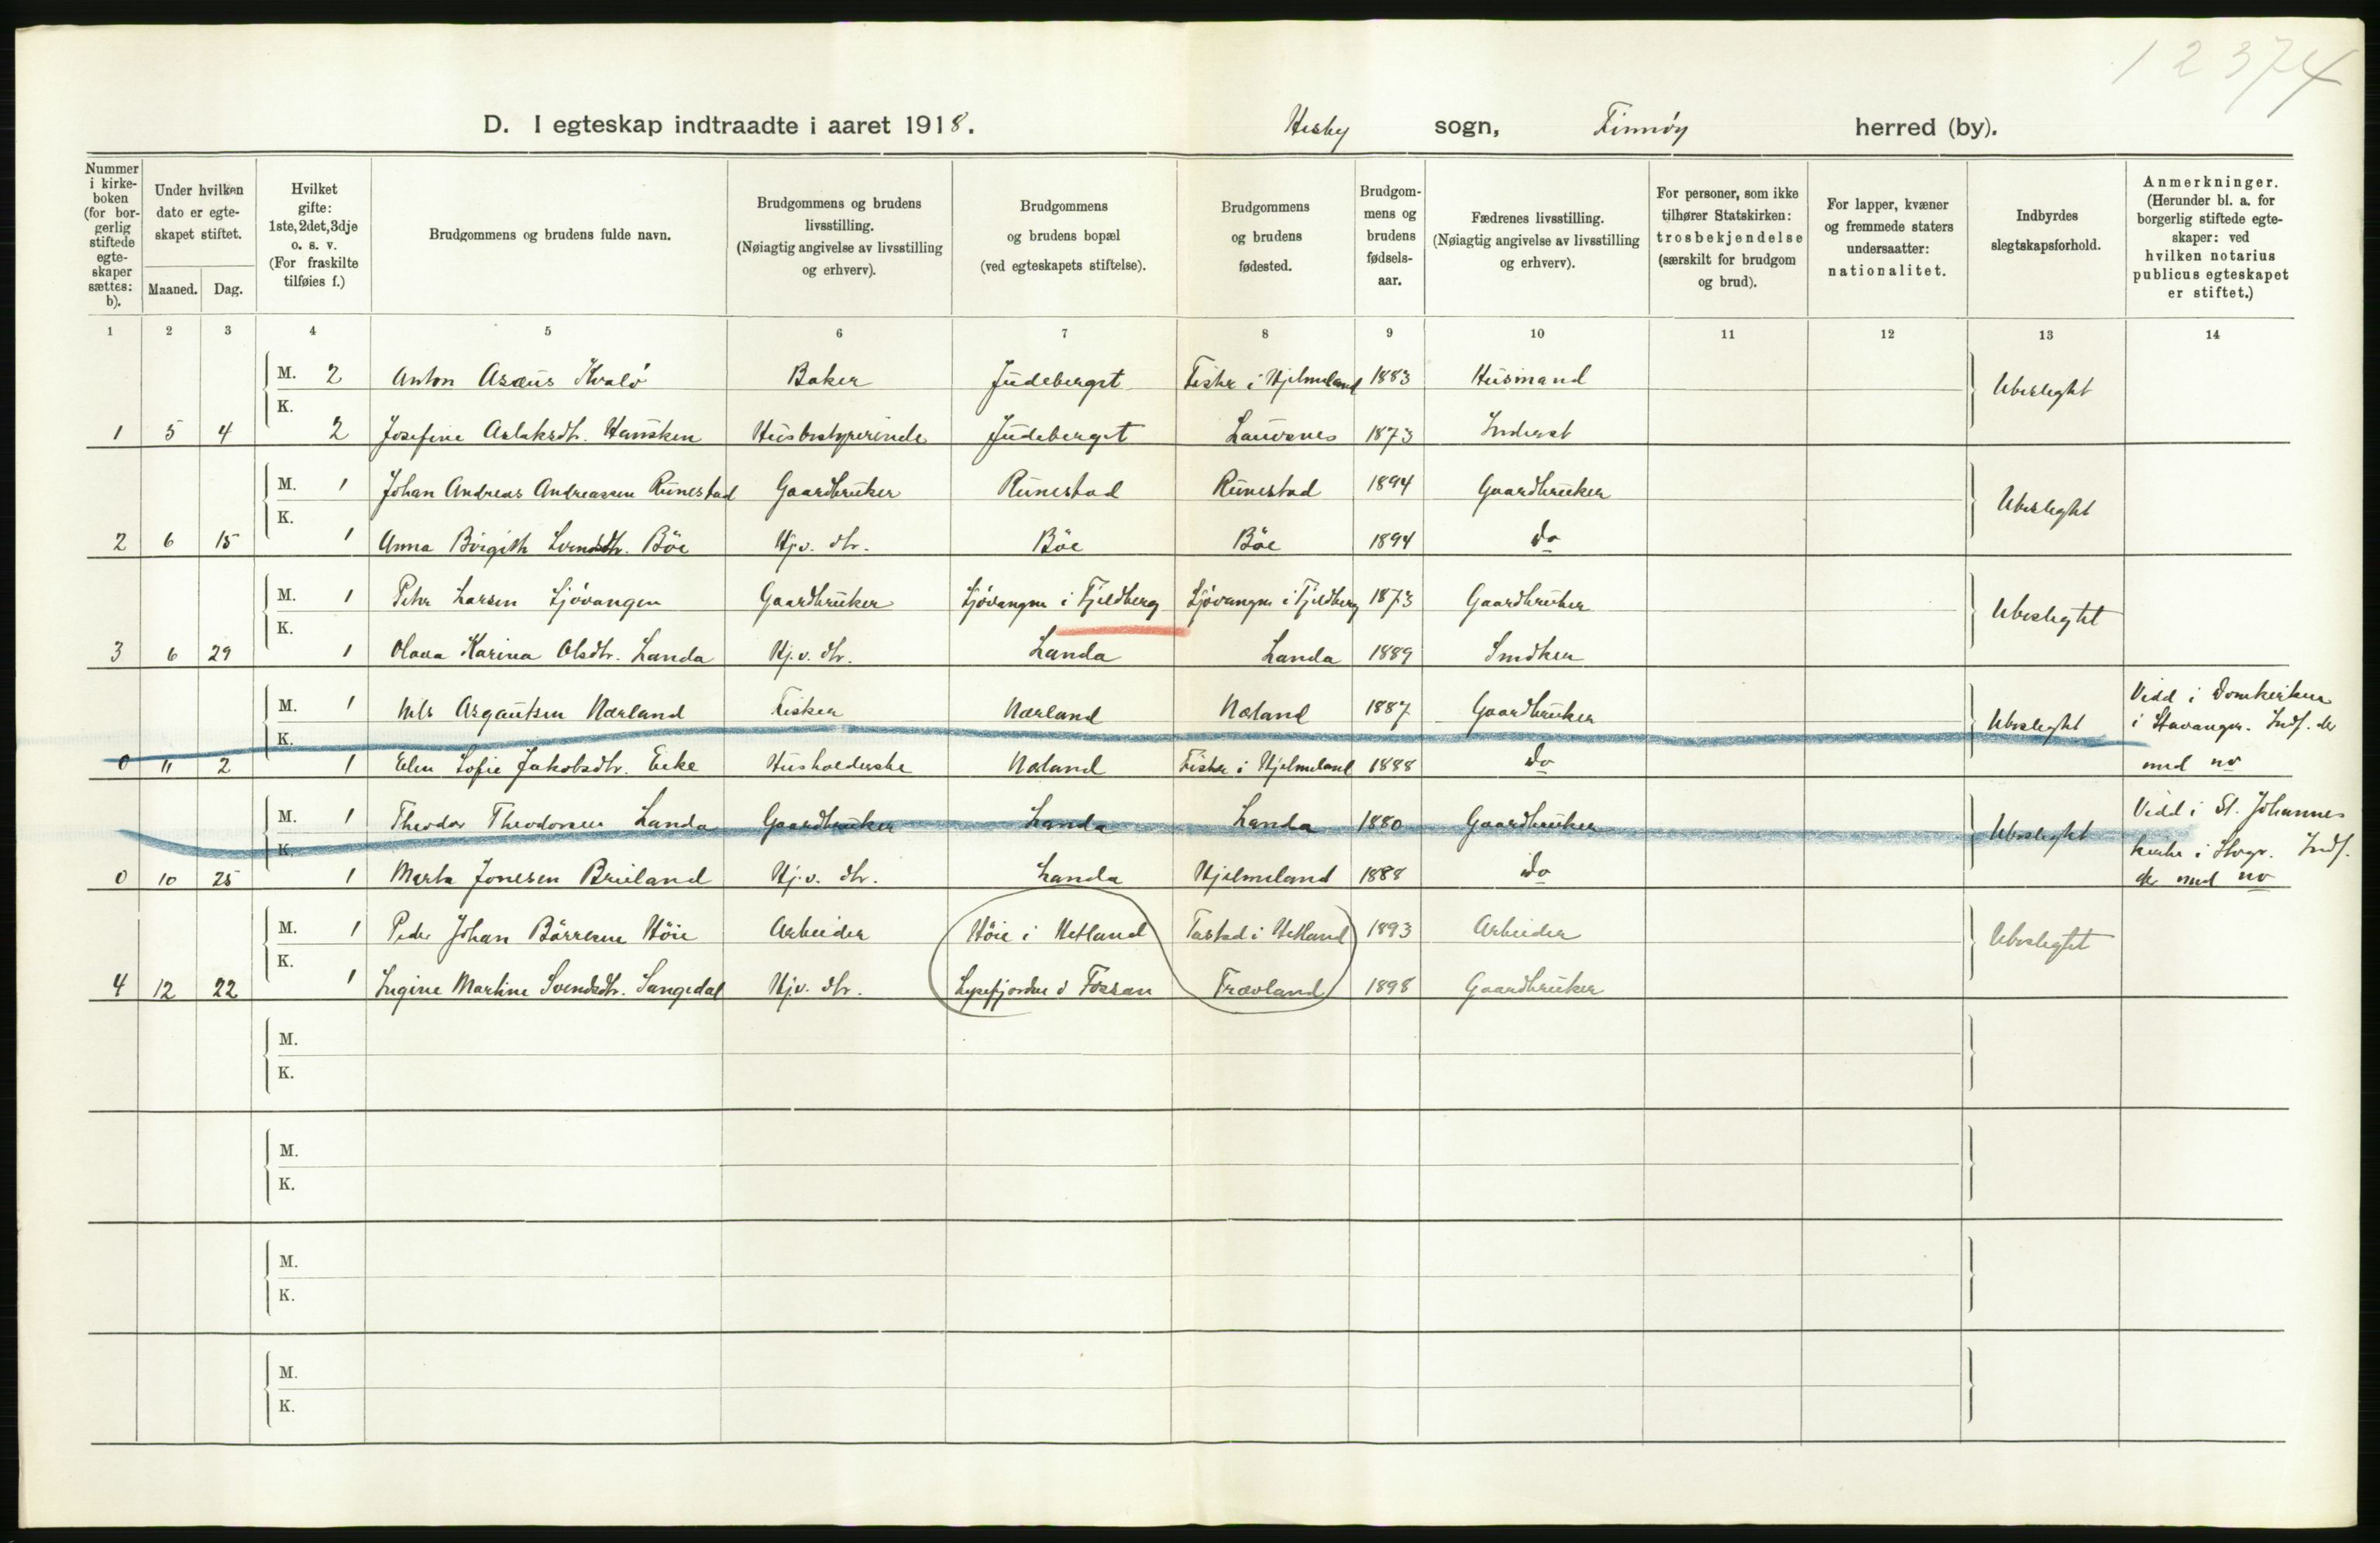 12374
D. I egteskap indtraadte i aaret 1918. Hesby sogn, Finnöy herred (by).
Nummer i kirkeboken (for borgerlig stiftede egteskaper sættes: b).
Under hvilken dato er egteskapet stiftet.
Maaned. Dag.
Hvilket gifte: 1ste, 2det, 3dje o. s. v. (For fraskilte tilføies f.)
Brudgommens og brudens fulde navn.
Brudgommens og brudens livsstilling. (Nøiagtig angivelse av livsstilling og erhverv).
Brudgommens og brudens bopæl (ved egteskapets stiftelse).
Brudgommens og brudens fødested.
Brudgommens og brudens fødselsaar.
Fædrenes livsstilling. (Nøiagtig angivelse av livsstilling og erhverv).
For personer, som ikke tilhører Statskirken: trosbekjendelse (særskilt for brudgom og brud).
For lapper, kvæner og fremmede staters undersaatter: nationalitet.
Indbyrdes slegtskapsforhold.
Anmerkninger. (Herunder bl. a. for borgerlig stiftede egteskaper: ved hvilken notarius publicus egteskapet er stiftet.)
1 2 3 4 5 6 7 8 9 10 11 12 13 14
M. 2 Anton Asæus Kvalö Baker Judeberget Fister i Hjelmeland 1883 Husmand Ubeslegtet
K.
1 5 4 2 Josefine Aslaksdtr. Hausken Husbestyrerinde Judeberget Lauvsnes 1873 Inderst
M. 1 Johan Andreas Andreassen Runestad Gaardbruker Runestad Runestad 1894 Gaardbruker Ubeslegtet
K.
2 6 15 1 Anna Birgith Svendsdtr. Böe Hj.v. dtr. Böe Böe 1894 do
M. 1 Peter Larsen Sjövangen Gaardbruker Sjövangen i Fjeldberg Sjövangen i Fjeldberg 1873 Gaardbruker Ubeslegtet
K.
3 6 29 1 Olava Karina Olsdtr. Landa Hj.v. dtr. Landa Landa 1889 Snedker
M. 1 Nils Asgautsen Nærland Fisker Nærland Næland 1887 Gaardbruker Ubeslegtet Viet i Domkirken
K. i Stavanger. Indf. der
0 11 2 1 Elen Sofie Jakobsdtr. Eike Husholderske Næland Fister i Hjelmeland 1888 do med no
M. 1 Theodor Theodorsen Landa Gaardbruker Landa Landa 1880 Gaardbruker Ubeslegtet Viet i St. Johannes
K. kirke i Stvgr. Indf.
0 10 25 1 Marta Jonesen Brieland Hj.v. dtr. Landa Hjelmeland 1888 do der med no
M. 1 Peder Johan Börresen Höie Arbeider Höie i Hetland Tastad i Hetland 1893 Arbeider Ubeslegtet
K.
4 12 22 1 Ingine Martine Svendsdtr. Sangedal Hj.v. dtr. Lysefjorden i Fossan Trævland 1898 Gaardbruker
M.
K.
M.
K.
M.
K.
M.
K.